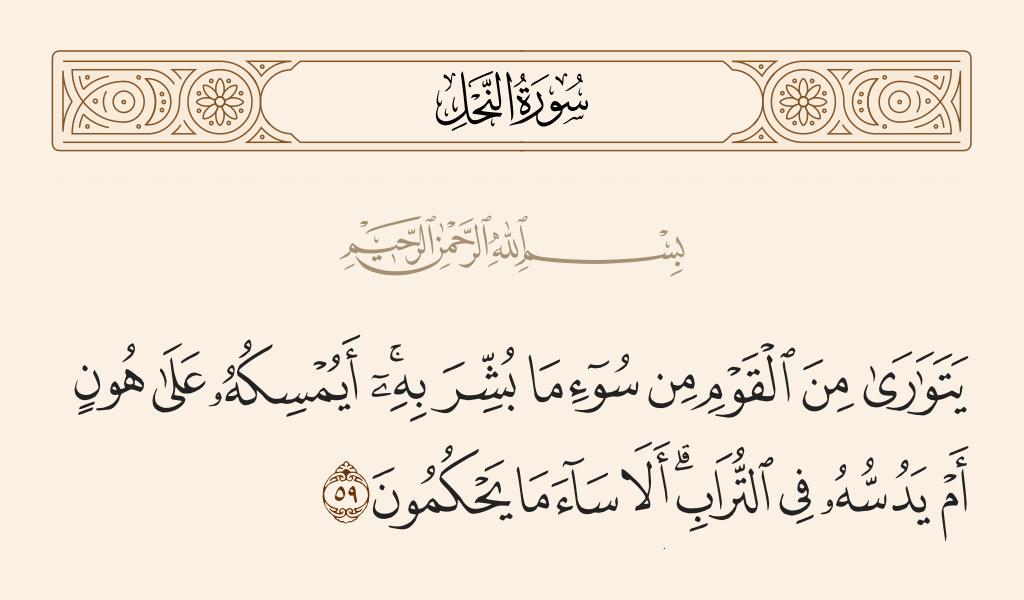 سُورَةُ النَّحْلِ
بِسْمِ ٱللَّهِ ٱلرَّحْمَٰنِ ٱلرَّحِيمِ
يَتَوَٰرَىٰ مِنَ ٱلْقَوْمِ مِن سُوٓءِ مَا بُشِّرَ بِهِۦٓ ۚ أَيُمْسِكُهُۥ عَلَىٰ هُونٍ
أَمْ يَدُسُّهُۥ فِى ٱلتُّرَابِ ۗ أَلَا سَآءَ مَا يَحْكُمُونَ ٥٩